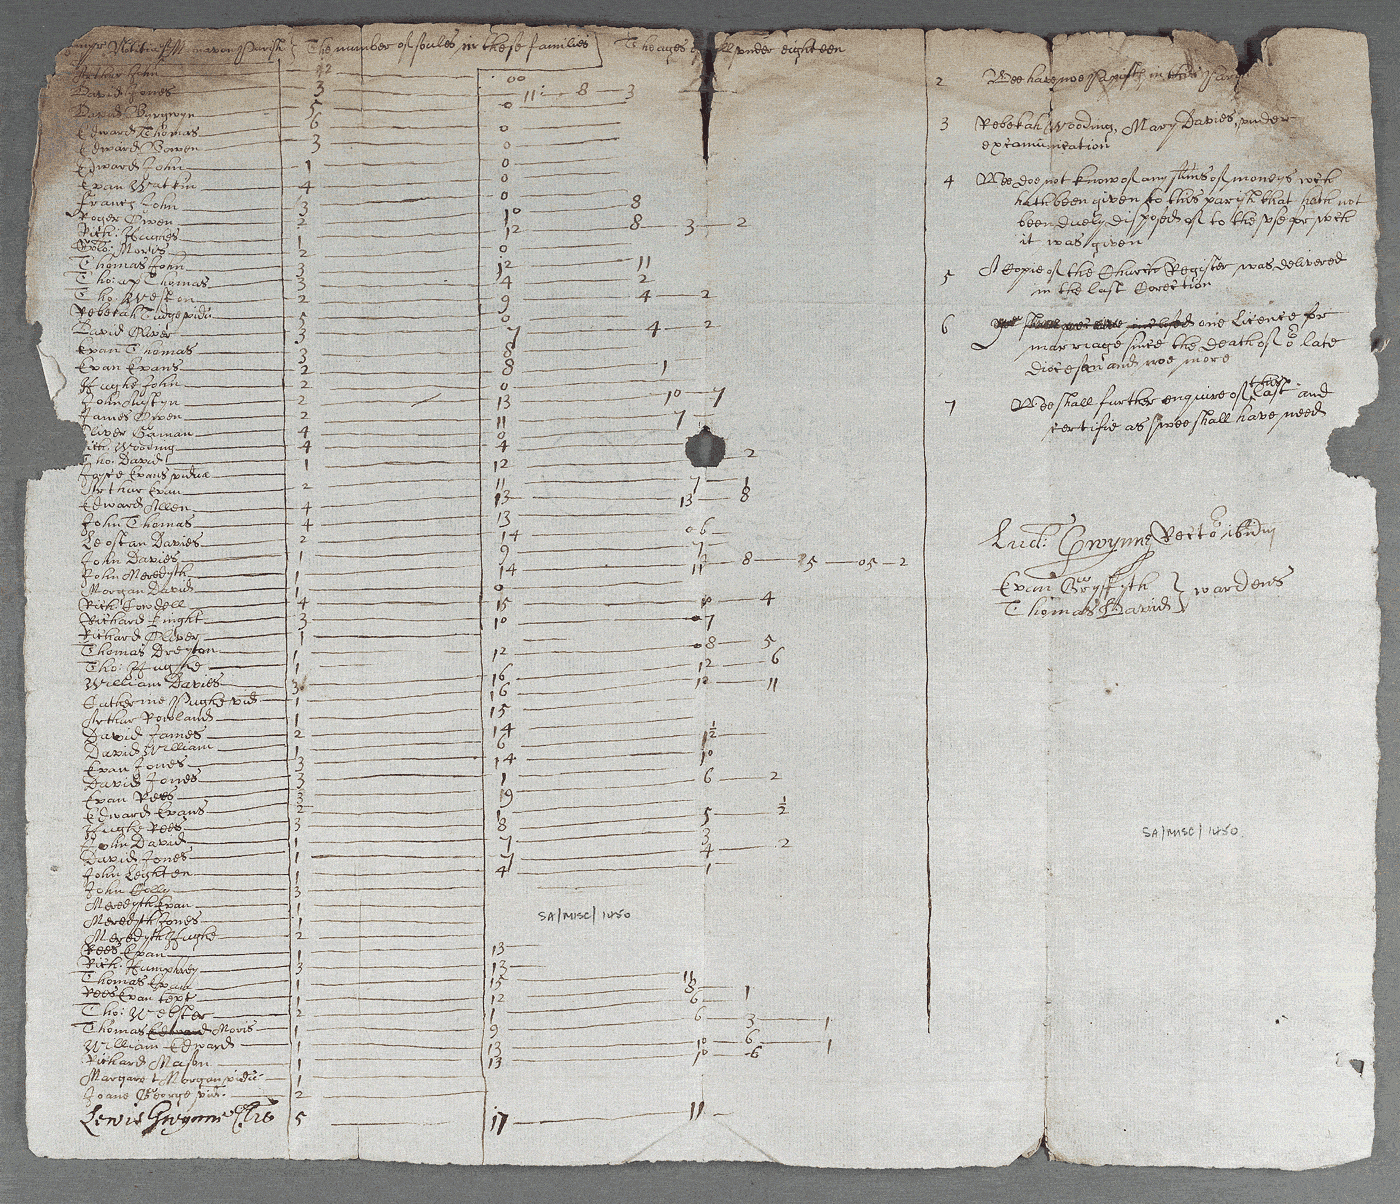 The number of soules in these families
The ages of all under eighteen
Arthur John 2 00
David Jones 3 11 8 3
David 5 0
Edward Thomas 6 0
Edward Bowen 3 0
Edward John 1 0
Evan Wattin 4 0
Francis John 3 10 8
Roger Owen 2 12 8 3 2
Rich: Hughes 1
Moris 2 0
Thomas John 3 12 11
Tho: ap Thomas 3 4 2
Tho: Weston 2 9 4 2
Rebekah Tudge vidu 5 0
David Oliver 3 7 4 2
Evan Thomas 3 8
Evan Evans 2 8 1
Hughe John 2 0
John Austyn 2 13 10 7
James Owen 2 11 7
Oliver 4 0
Rich: Wooding 4 4
Tho: David 1 12 2
Joyce Evans vidua
Arthur Evan 2 11 7 1
Edward Allen 4 13 13 8
John Thomas 4 13
Leostan Davies 2 14 6
John Davies 1 9 7
John Meredyth 1 14 11 8 5 05 2
Morgan David 1 0
Rich: Lowdell 4 15 10 4
Richard 3 10 7
Richard Oliver 1
Thomas Dreyton 1 12 8 5
Tho: Hughe 1 12 6
William Davies 3 16 10 11
Catherine Pughe vid 1 16
Arthur Rowland 1 15
David James 2 14 1½
David William 1 6
Evan Jones 3 14 10
David Jones 3 1 6 2
Evan Rees 3 19
Edward Evans 2 1 5 ½
Hughe Rees 3 8
John David 1 7 3 2
David Jones 1 7 4
John Leighten 1 4 1
John 3
Meredyth Evan 1
Meredyth Jones 1
Meredyth Hughe 2
Rees Evan 1 13
Rich: Humphrey 3 13
Thomas Evan 1 15 11
Rees Evan 1 12 8 1
Tho: Webster 2 1 6
Thomas Edward Moris 1 9 6 3 1
William Edward 1 13 10 6 1
Richard Mason 1 13 10 6
Margaret Morgan vidu 1
Joane George vid: 2
Lewis Gwynne Cler 5 17 11
SA/MISC/1450
2 Wee have noe Papists in this Parish
3 Rebekah Wooding, Mary Davies, under
examination
4 Wee doe not know of any sums of moneys wch
hath been given to this parish that hath not
been duely disposed of to the use for wch
it was given
5 A Copie of the Church Register was delivered
in the last Corection
6 one Licence for
marriage since the death of or late
diocesan and noe more
7 Wee shall further enquire of this last and
certifie as wee shall have need
Lud: Gwynne Rector ibidm
Evan Gryffyth } wardens
Thomas David
SA/MISC/1450